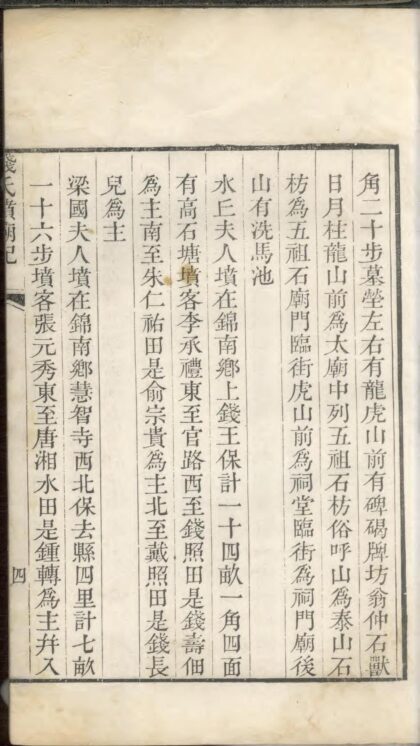 角二十步墓塋左右有龍虎山前有碑碣牌坊翁仲石獸
日月柱龍山前爲太廟中列五祖石枋俗呼山爲泰山石
枋爲五祖石廟門臨街虎山前爲祠堂臨街爲祠門廟後
山有洗馬池
水丘夫人墳在錦南鄉上錢王保計一十四畝一角四面
有高石塘墳客李承禮東至官路西至錢照田是錢壽佃
爲主南至朱仁祐田是俞宗貴爲主北至戴照田是錢長
兒爲主
梁國夫人墳在錦南鄉慧智寺西北保去縣四里計七畝
一十六步墳客張元秀東至唐湘水田是鍾轉爲主幷入
錢氏墳廟記
四